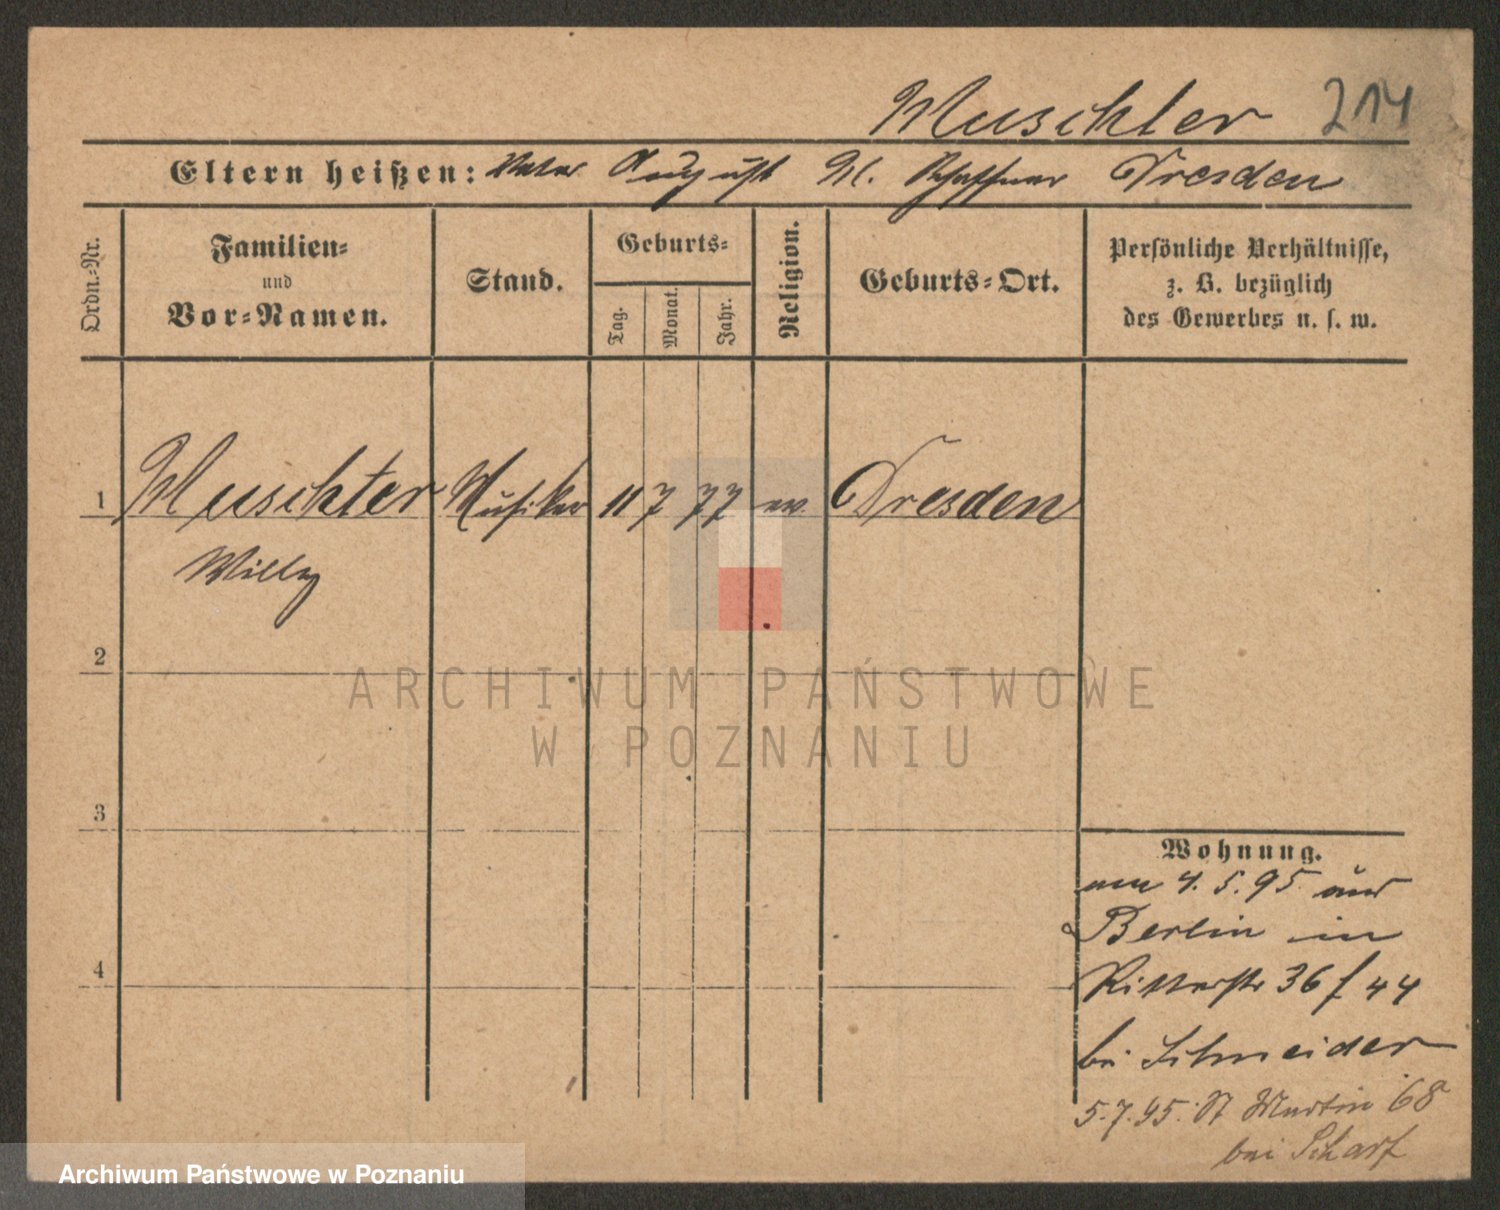 Muschter 214
Eltern heißen: Vater August M. Schaffner Dresden
Ordn.-Nr.
Familien-
und
Vor-Namen.
Stand.
Geburts-
Tag.
Monat.
Jahr.
Religion.
Geburts-Ort.
Persönliche Verhältnisse,
z. B. bezüglich
des Gewerbes u. s. w.
1 Muschter Musiker 11 7 77 ev. Dresden
Willy
2
ARCHIWUM PAŃSTWOWE
W POZNANIU
3
Wohnung.
4.5.95 aus
Berlin in
4
Ritterstr 36 f 44
bei Schneider
5.7.95. St Martin 68
bei Scharf
Archiwum Państwowe w Poznaniu